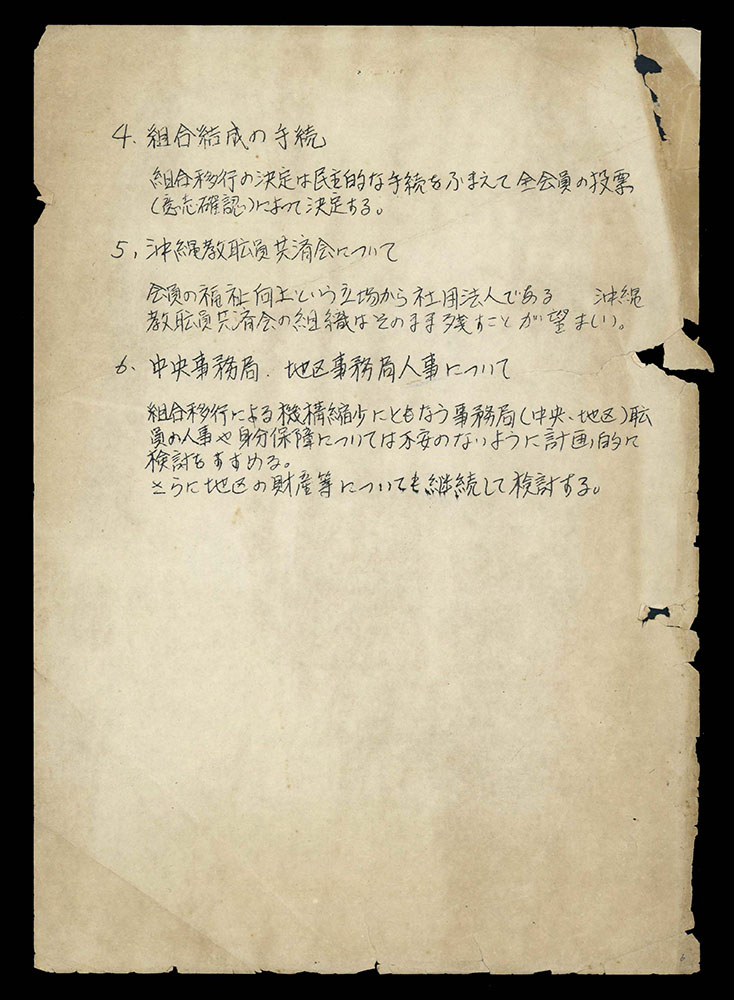 4. 組合結成の手続
組合移行の決定は民主的な手続をふまえて全会員の投票
(意志確認)によって決定する。
5, 沖縄教職員共済会について
会員の福祉向上という立場から社団法人である 沖縄
教職員共済会の組織はそのまま残すことが望ましい。
6. 中央事務局. 地区事務局人事について
組合移行による機構縮少にともなう事務局(中央、地区)職
員の人事や身分保障については不安のないように計画的に
検討をすすめる。
さらに地区の財産等についても継続して検討する。